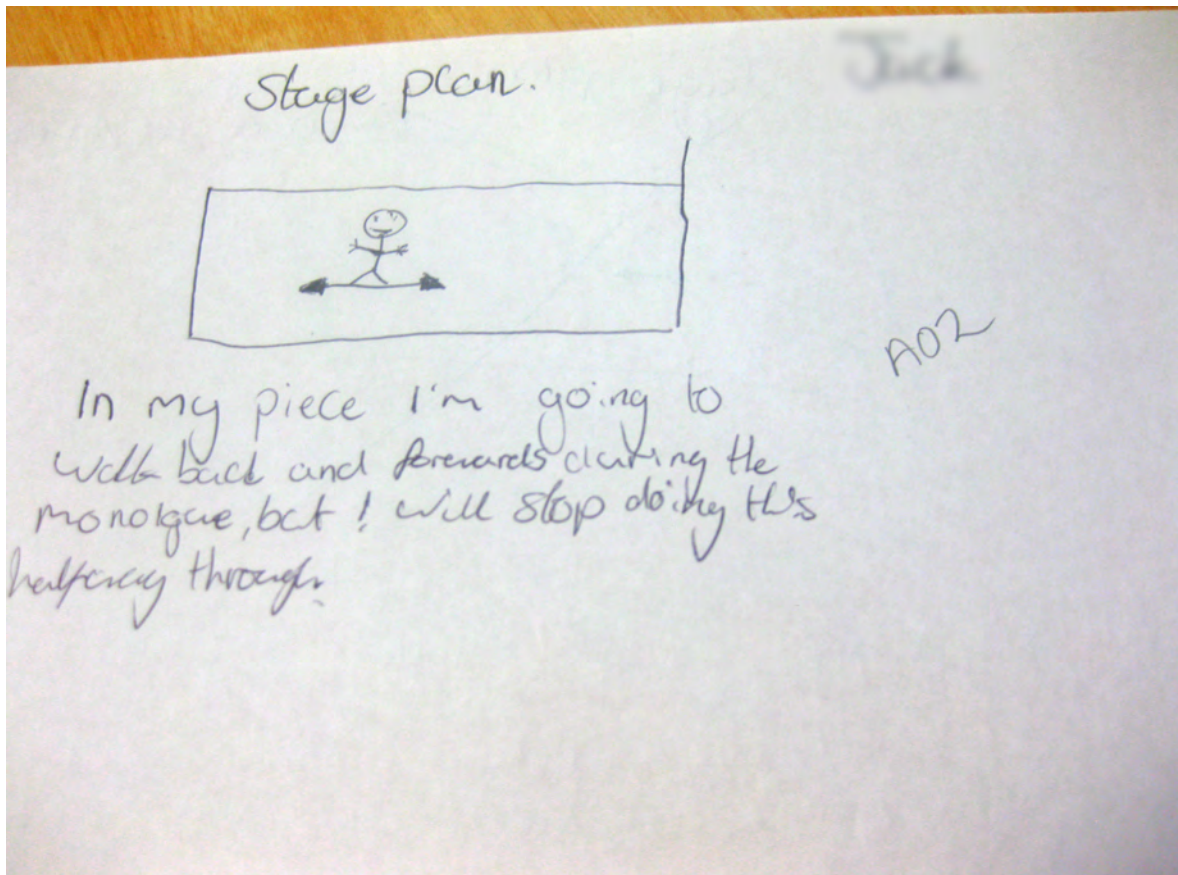 Stage plan.
A02
In my piece I'm going to
walk back and forwards during the
monolgue, but I will stop doing this
halfway through.